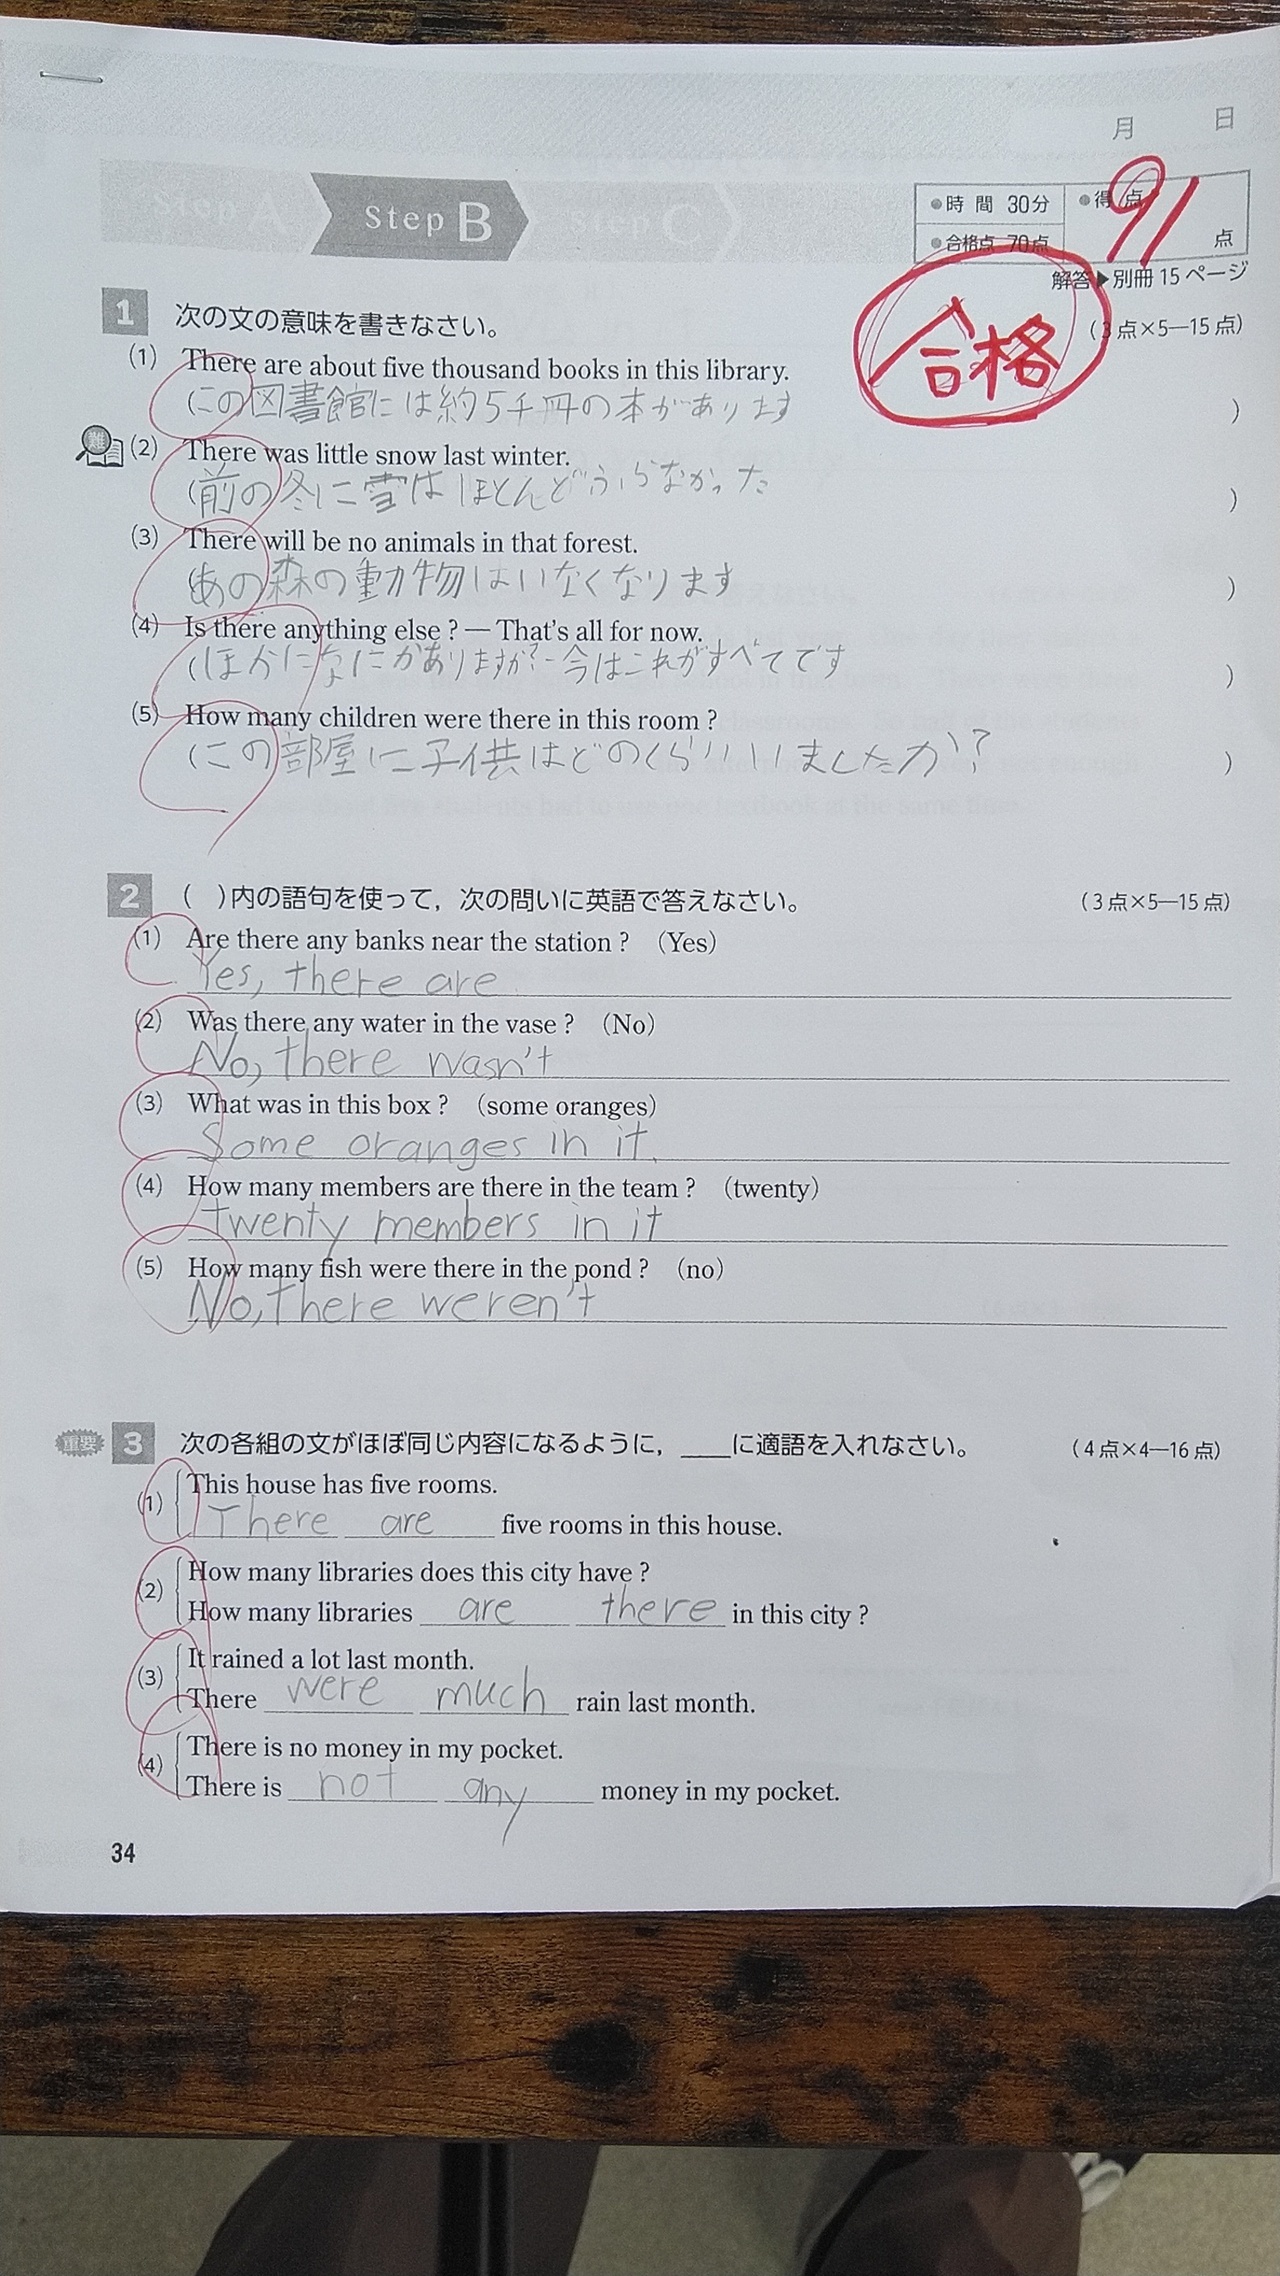 月 日
Step A Step B Step C
●時間 30分 ●得点 91点
●合格点 70点
解答▶別冊15ページ
合格
1 次の文の意味を書きなさい。 (3点×5—15点)
(1) There are about five thousand books in this library.
(この図書館には約5千冊の本があります )
難 (2) There was little snow last winter.
(前の冬に雪はほとんどふらなかった )
(3) There will be no animals in that forest.
(あの森の動物はいなくなります )
(4) Is there anything else ? — That's all for now.
(ほかになにかありますか?-今はこれがすべてです )
(5) How many children were there in this room ?
(この部屋に子供はどのくらいいましたか? )
2 ( )内の語句を使って，次の問いに英語で答えなさい。 (3点×5—15点)
(1) Are there any banks near the station ? (Yes)
Yes, there are
(2) Was there any water in the vase ? (No)
No, there wasn't
(3) What was in this box ? (some oranges)
Some oranges in it.
(4) How many members are there in the team ? (twenty)
twenty members in it
(5) How many fish were there in the pond ? (no)
No, there weren't
重要 3 次の各組の文がほぼ同じ内容になるように，____に適語を入れなさい。 (4点×4—16点)
(1) This house has five rooms.
There are five rooms in this house.
(2) How many libraries does this city have ?
How many libraries are there in this city ?
(3) It rained a lot last month.
There were much rain last month.
(4) There is no money in my pocket.
There is not any money in my pocket.
34